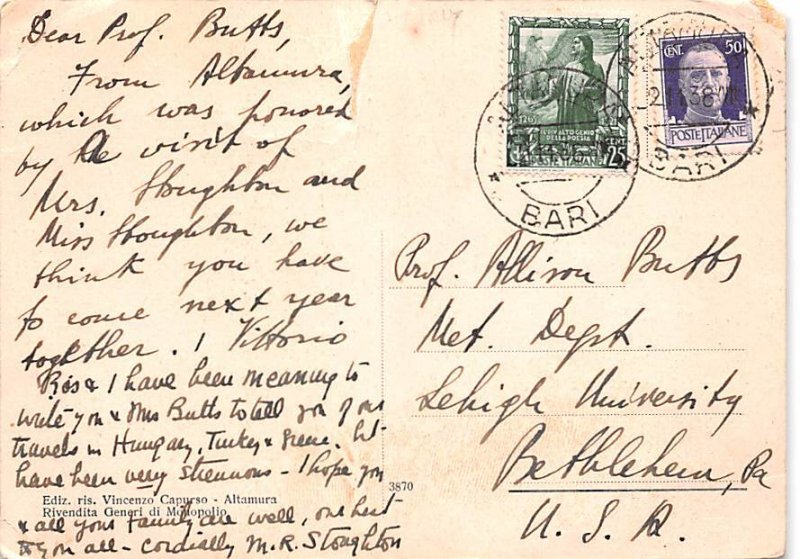 Dear Prof. Butts,
From Altamura,
which was honored
by the visit of
Mrs. Stoughton and
Miss Stoughton, we
think you have
to come next year
together. Vittorio
& I have been meaning to
write you & Mrs Butts to tell you of our
travels in Hungary, Turkey & Greece. but
have been very strenuous - I hope you
& all your family are well, our best
to you all - cordially M. R. Stoughton
Ediz. ris. Vincenzo Capurso - Altamura
Rivendita Generi di Monopolio
3870
CENT 25
POSTE ITALIANE
BARI
CENT. 50
POSTE ITALIANE
BARI
Prof. Allison Butts
Met. Dept.
Lehigh University
Bethlehem, Pa
U. S. A.